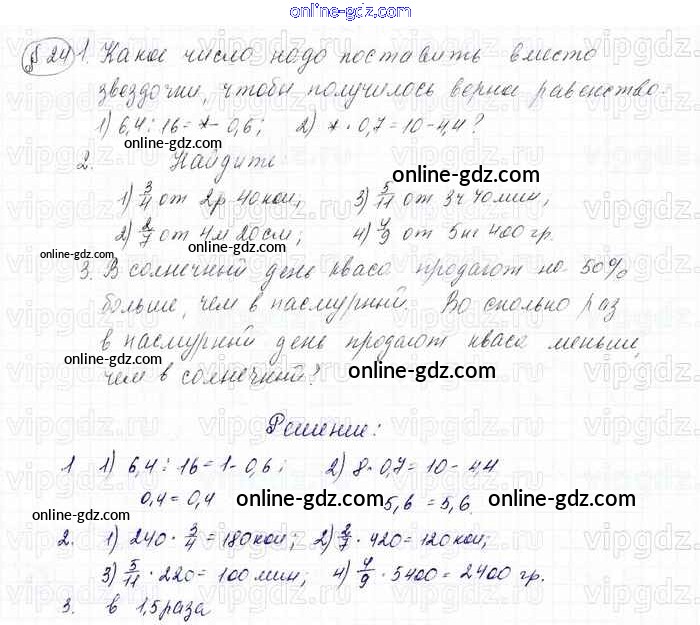 online-gdz.com
§ 24 1. Какое число надо поставить вместо
звездочки, чтобы получилось верное равенство:
1) 6,4 : 16 = * - 0,6; 2) * · 0,7 = 10 - 4,4?
online-gdz.com
2. Найдите:
online-gdz.com
1) 3/4 от 2р 40коп; 3) 5/11 от 3ч 40мин;
2) 2/7 от 4м 20см; 4) 4/9 от 5кг 400 гр.
online-gdz.com online-gdz.com
3. В солнечный день кваса продают на 50%
больше, чем в пасмурный. Во сколько раз
в пасмурный день продают кваса меньше,
online-gdz.com online-gdz.com
чем в солнечный?
Решение:
1 1) 6,4 : 16 = 1 - 0,6; 2) 8 · 0,7 = 10 - 4,4
0,4 = 0,4 5,6 = 5,6
online-gdz.com online-gdz.com online-gdz.com
2. 1) 240 · 3/4 = 180 коп; 2) 2/7 · 420 = 120 коп;
3) 5/11 · 220 = 100 мин; 4) 4/9 · 5400 = 2400 гр.
3. в 1,5 раза